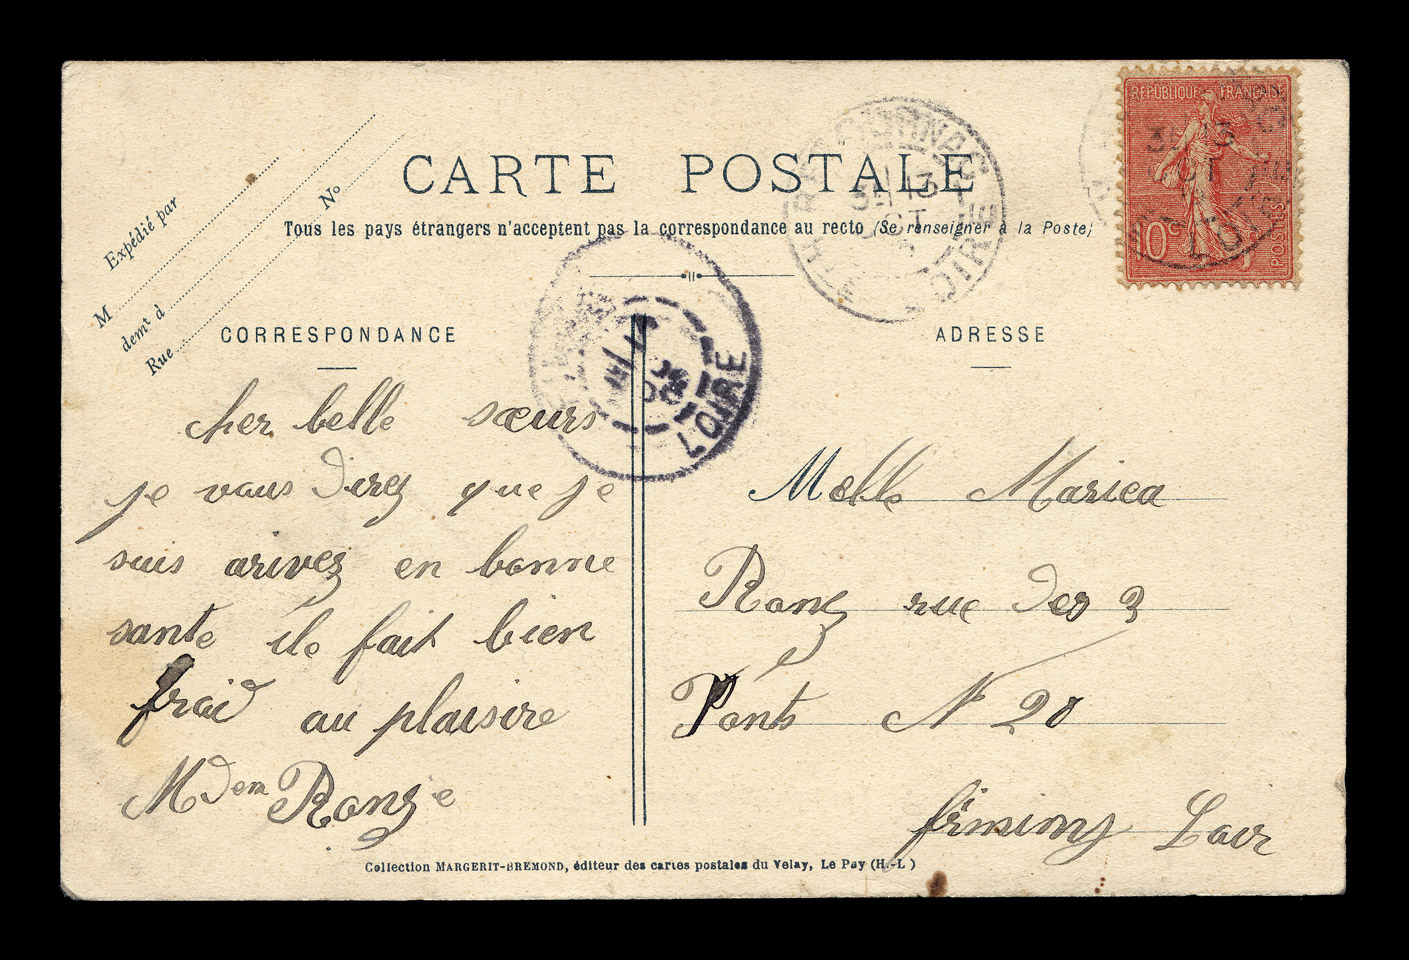 CARTE POSTALE
Tous les pays étrangers n'acceptent pas la correspondance au recto (Se renseigner à la Poste)
Expédié par
M
demt d
Rue
No
CORRESPONDANCE
cher belle sœurs
je vous direz que je
suis arivez en bonne
sante ile fait bien
fraid au plaisire
Mdem Ranze
ADRESSE
Melle Mariea
Ranz rue des 3
Ponts N 20
firminy Loir
REPUBLIQUE FRANÇAISE
10c
POSTES
13
OCT
LOIRE
Collection MARGERIT-BREMOND, éditeur des cartes postales du Velay, Le Puy (H.-L)